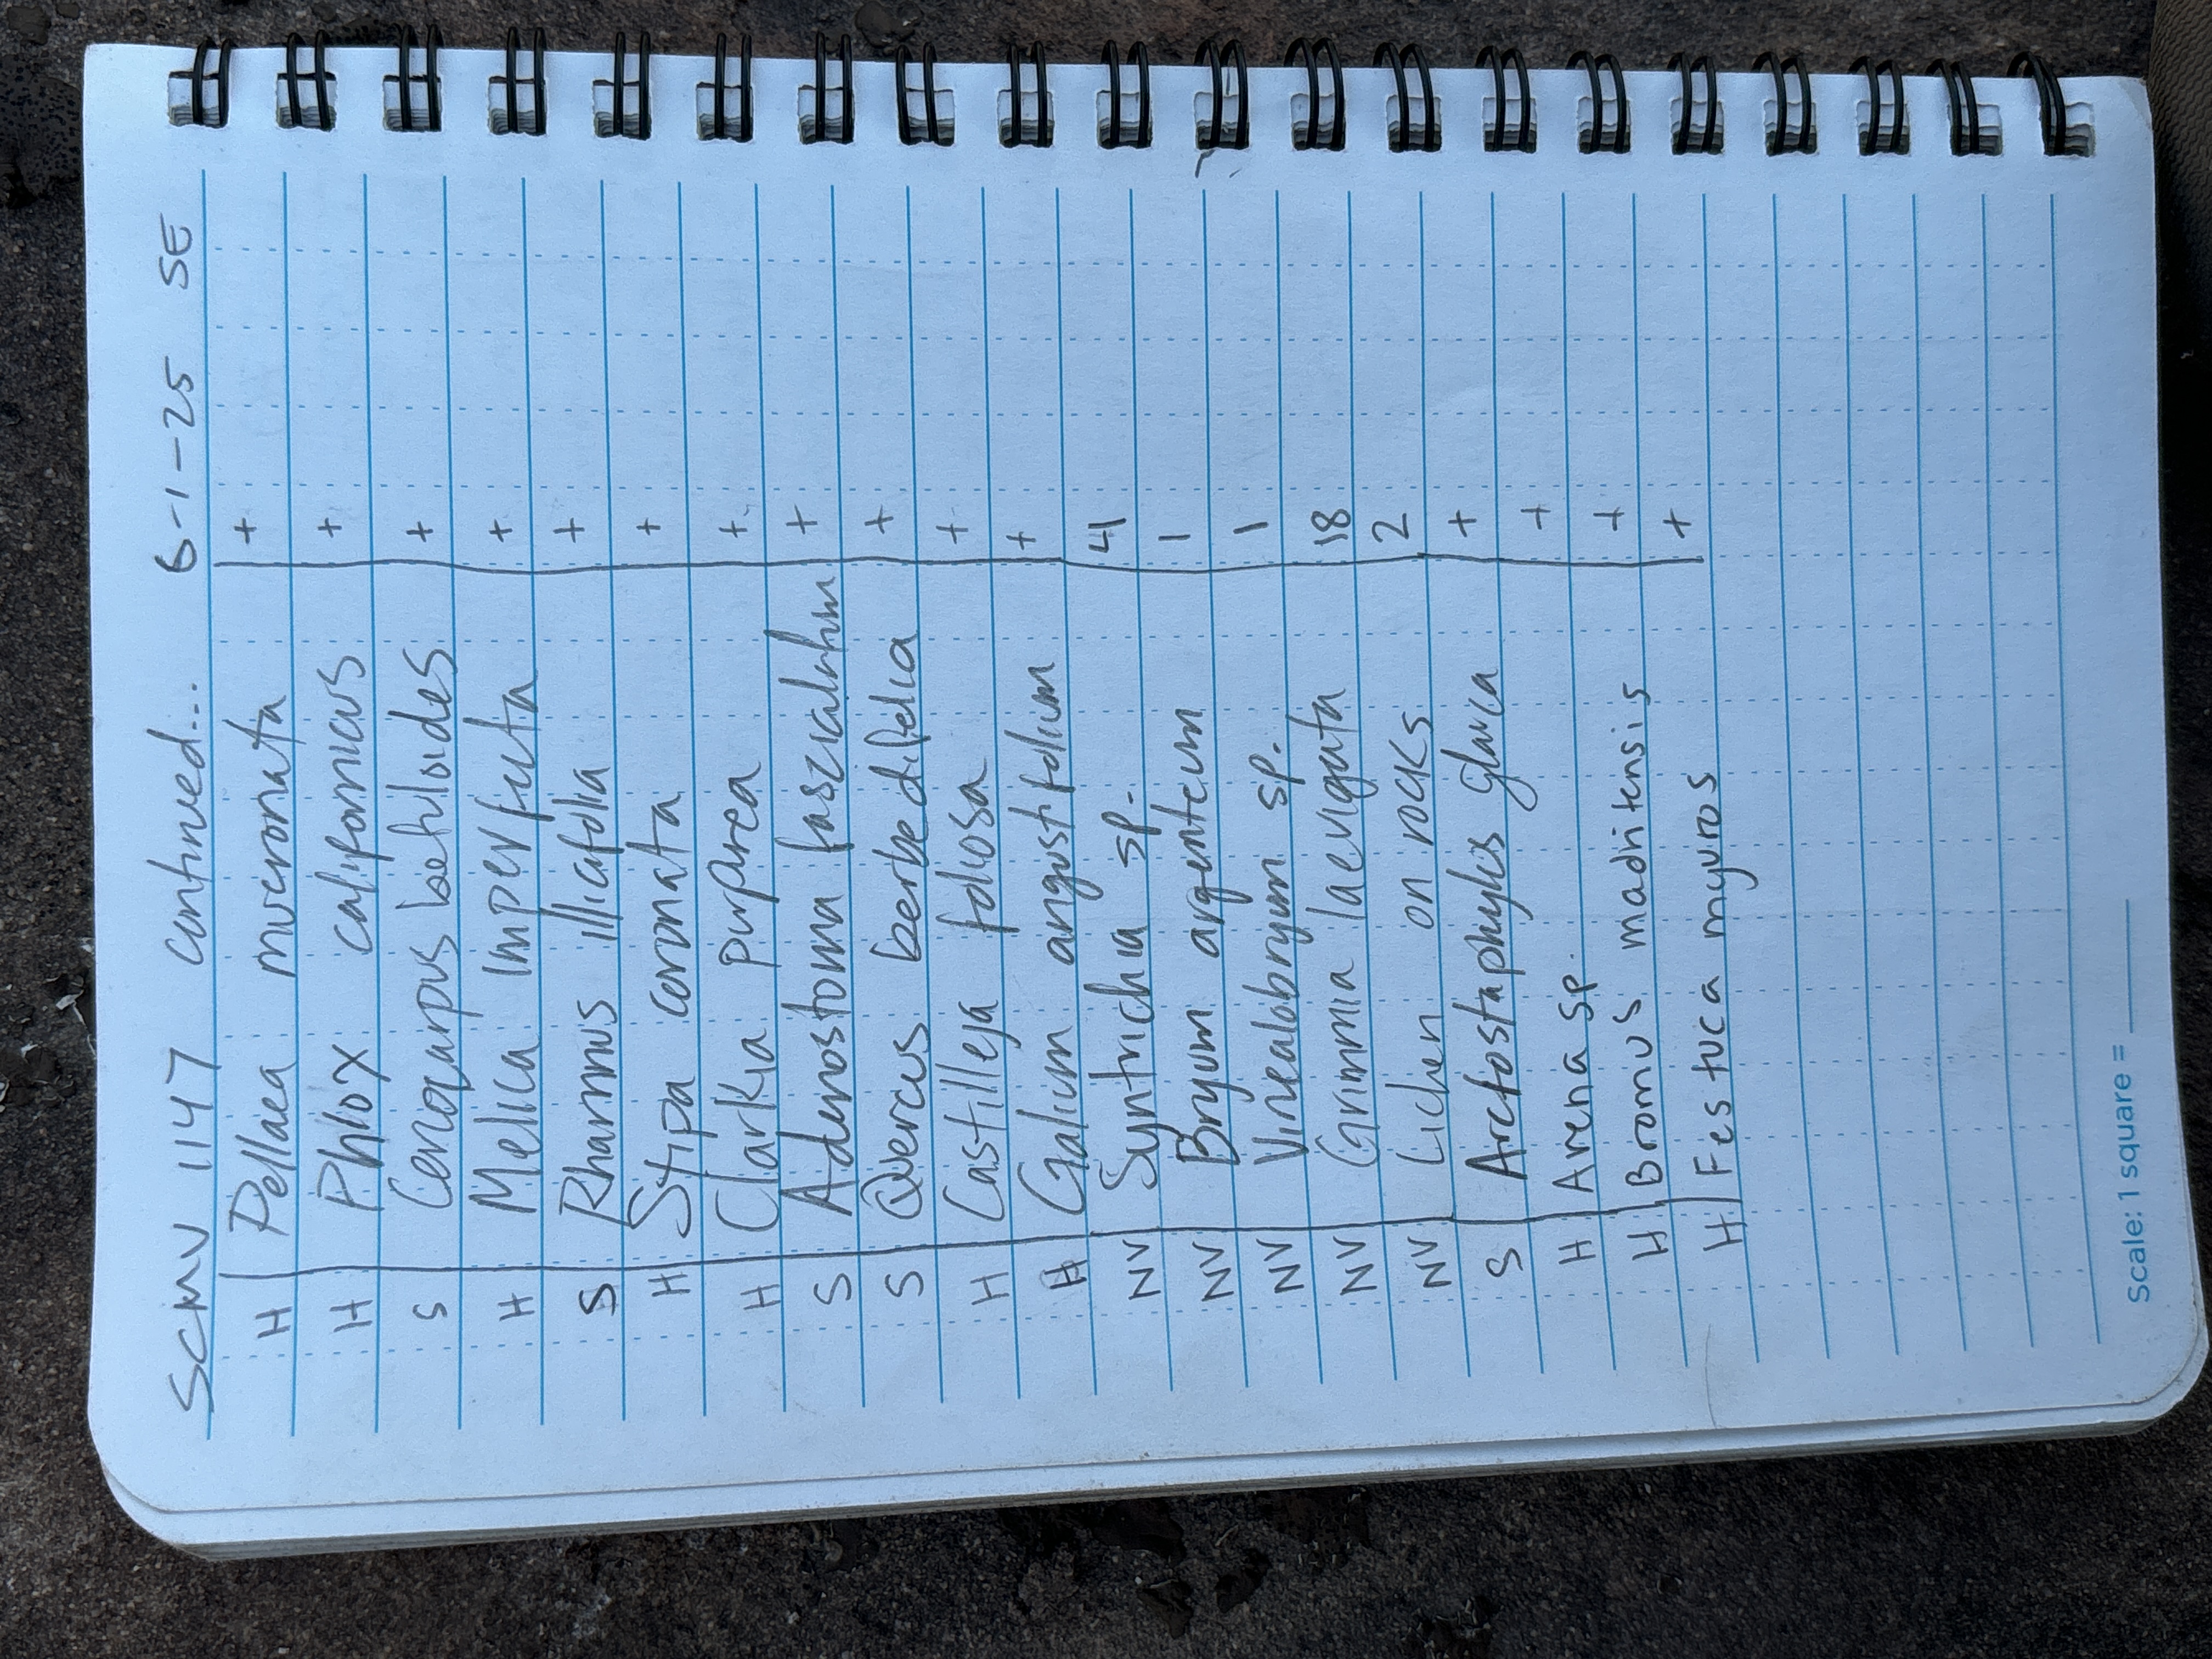 SCMV 1147 continued... 6-1-25 SE
H Pellaea mucronata +
H Phlox californicus +
S Cercocarpus betuloides +
H Melica imperfecta +
S Rhamnus illicifolia +
H Stipa coronata +
H Clarkia purpurea +
S Adenostoma fascicalatum +
S Quercus berberdifolia +
H Castilleja foliosa +
H Galium angustifolium +
NV Syntrichia sp. 41
NV Bryum argenteum 1
NV Vinealobryum sp. 1
NV Grimmia laevigata 18
NV Lichen on rocks 2
S Arctostaphylos glauca +
H Avena sp. +
H Bromus madritensis +
H Festuca myuros +
Scale: 1 square =